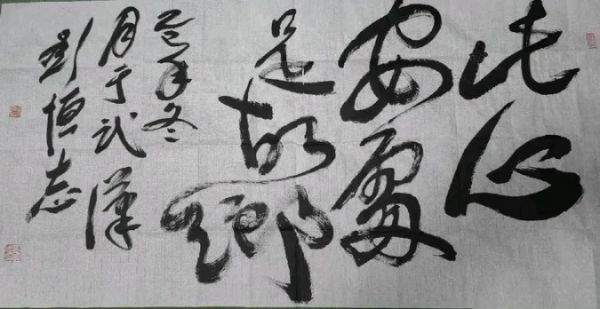 此心
安處
是故鄉
年冬
月于武漢
彭恒志